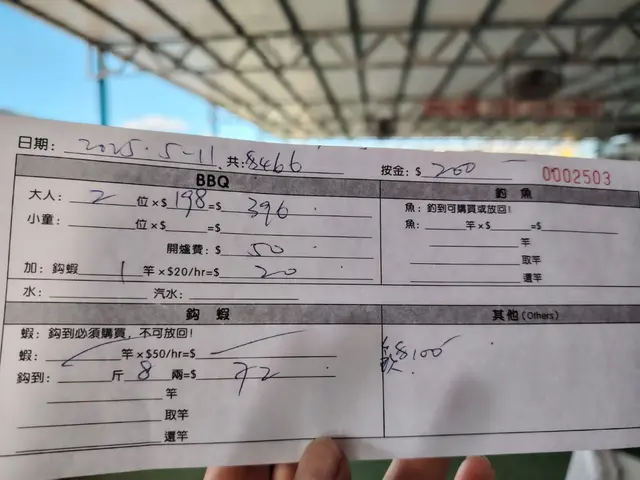 日期: 2025.5-11. 共:$466 按金: $ 200 0002503
BBQ
大人: 2 位×$ 198 =$ 396
小童: 位×$ =$
開爐費: $ 50
加: 鈎蝦 1 竿×$20/hr=$ 20
水: 汽水:
釣魚
魚: 釣到可購買或放回!
魚: 竿×$ =$
竿
取竿
還竿
鈎蝦
蝦: 鈎到必須購買, 不可放回!
蝦: 竿×$50/hr=$
鈎到: 斤 8 兩=$ 72
竿
取竿
還竿
其他 (Others)
$100